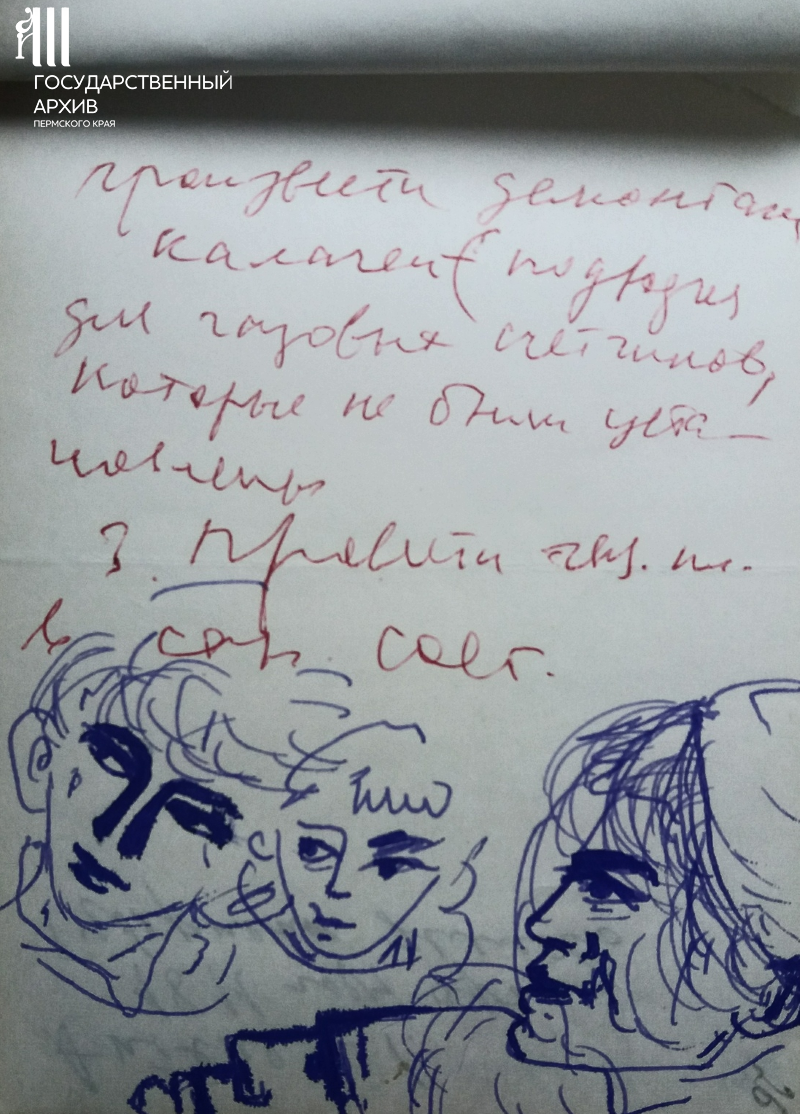 ГОСУДАРСТВЕННЫЙ
АРХИВ
ПЕРМСКОГО КРАЯ
произвести демонтаж
калачей (подводка
для газовых счетчиков,
которые не были уста-
новлены
3. Провести
в сост.